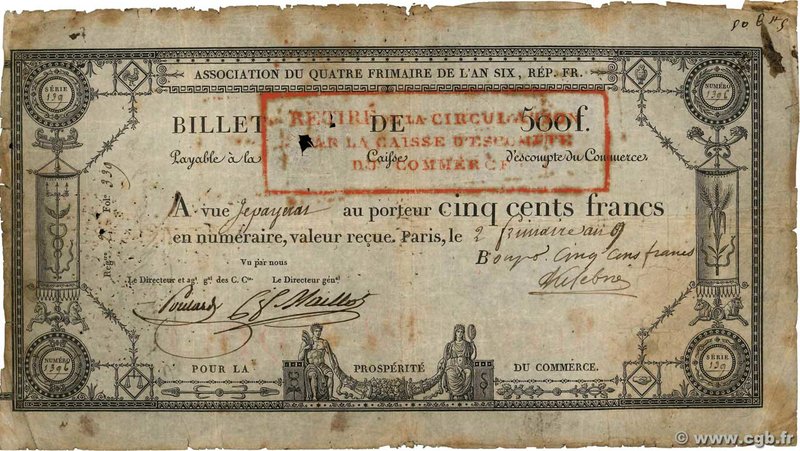 ASSOCIATION DU QUATRE FRIMAIRE DE L'AN SIX, RÉP. FR.
SÉRIE
139
NUMÉRO
1396
RETIRÉ DE LA CIRCULATION
PAR LA CAISSE D'ESCOMPTE
DU COMMERCE
BILLET DE 500f.
Payable à la Caisse d'escompte du Commerce
Regre. Fol: 339
A vue Je payerai au porteur cinq cents francs
en numéraire, valeur reçue. Paris, le 2 frimaire an 9
Vu par nous
Bon po cinq cens francs
Le Directeur et agt. gal. des C. Cte. Le Directeur génal.
Lefebvre
NUMÉRO
1396
POUR LA PROSPÉRITÉ DU COMMERCE.
SÉRIE
139
© www.cgb.fr